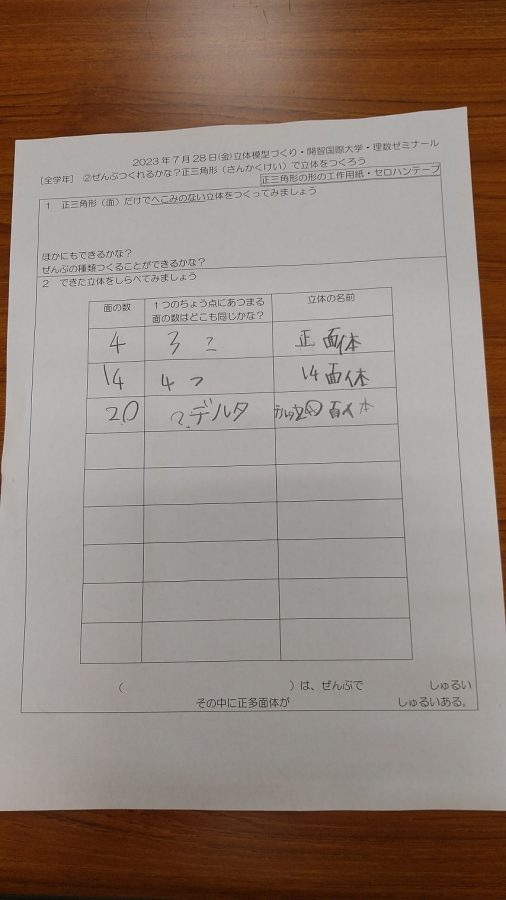 2023年7月28日(金)立体模型づくり・開智国際大学・理数ゼミナール
[全学年] ②ぜんぶつくれるかな？正三角形（さんかくけい）で立体をつくろう
正三角形の形の工作用紙・セロハンテープ
1 正三角形（面）だけでへこみのない立体をつくってみましょう
ほかにもできるかな？
ぜんぶの種類つくることができるかな？
2 できた立体をしらべてみましょう
面の数
1つのちょう点にあつまる
面の数はどこも同じかな？
立体の名前
4 3 正 面体
14 4 つ 14面体
20 デルタ
( ）は、ぜんぶで しゅるい
その中に正多面体が しゅるいある。